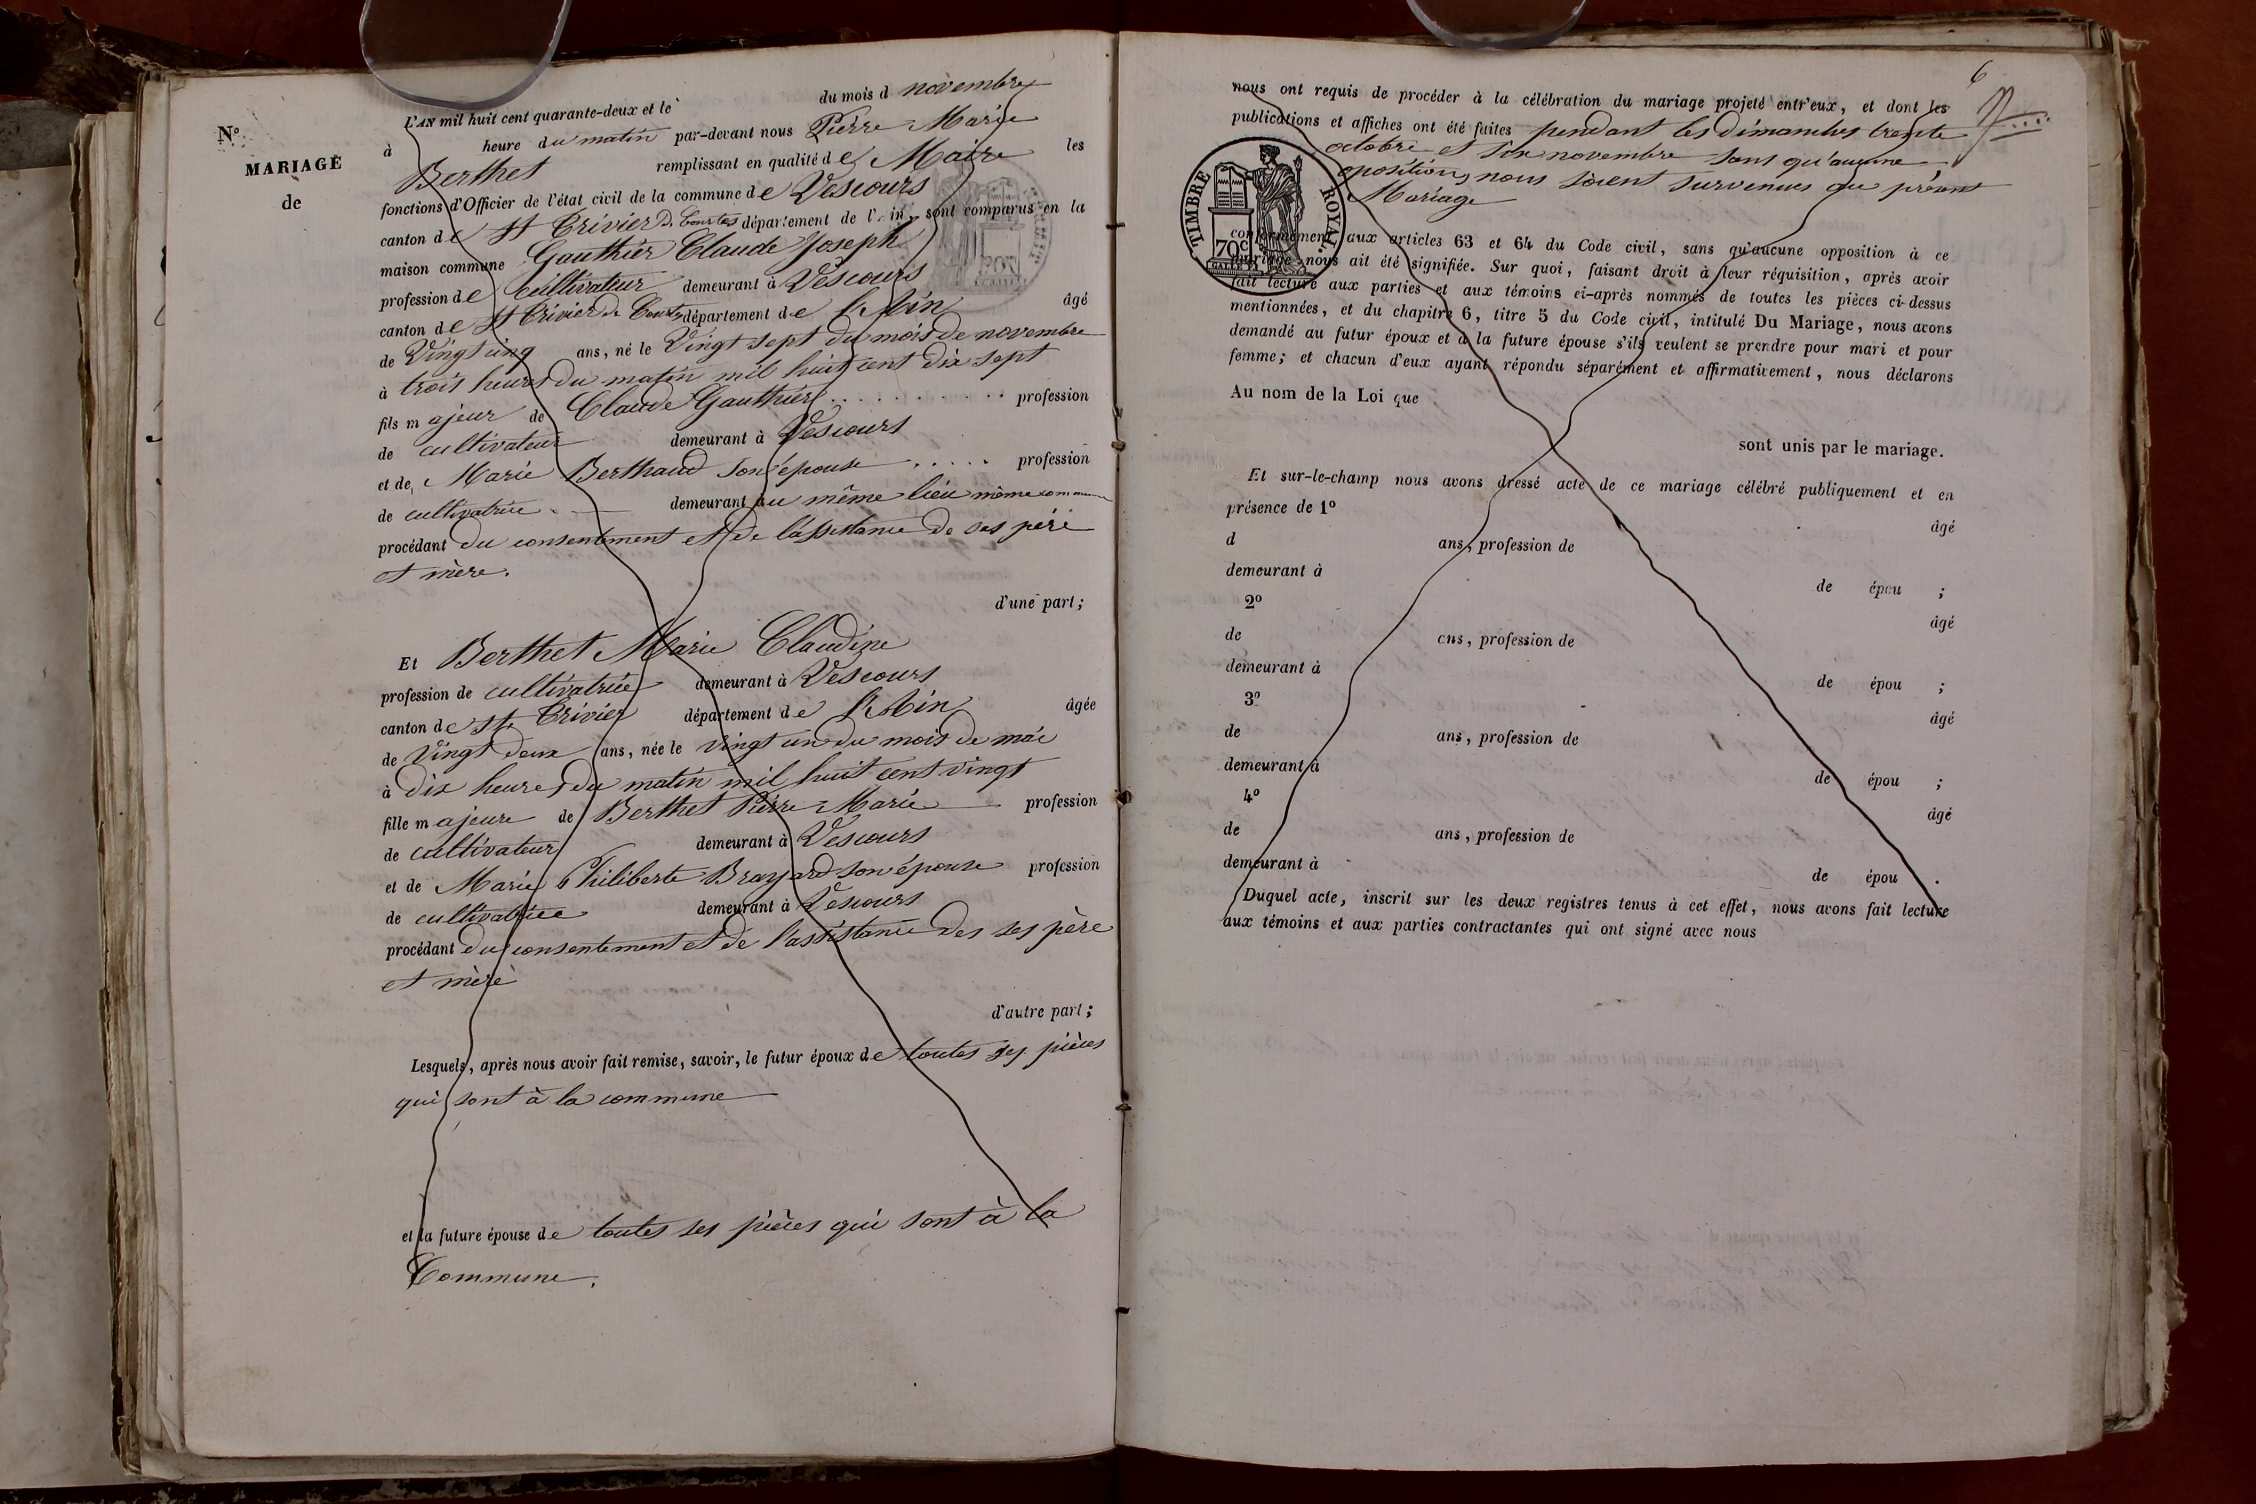 N.º
MARIAGE
de
L'AN mil huit cent quarante-deux et le du mois d novembre
à heure du matin par-devant nous Pierre Marie
Berthet remplissant en qualité de Maire les
fonctions d'Officier de l'état civil de la commune de Vescours
canton de St Trivier de Courtes département de l'Ain, sont comparus en la
maison commune Gauthier Claude Joseph
profession de cultivateur demeurant à Vescours
canton de St Trivier de Courtes département de l'Ain âgé
de Vingt cinq ans, né le Vingt sept du mois de novembre
à trois heures du matin mil huit cent dix sept
fils majeur de Claude Gauthier profession
de cultivateur demeurant à Vescours
et de Marie Berthaud son épouse profession
de cultivatrice demeurant au même lieu même commune
procédant du consentement et de l'assistance de ses père
et mère.
d'une part;
Et Berthet Marie Claudine
profession de cultivatrice demeurant à Vescours
canton de St Trivier département de l'Ain âgée
de Vingt deux ans, née le vingt un du mois de mai
à dix heures du matin mil huit cent vingt
fille majeure de Berthet Pierre Marie profession
de cultivateur demeurant à Vescours
et de Marie Philiberte Brayard son épouse profession
de cultivatrice demeurant à Vescours
procédant du consentement et de l'assistance des ses père
et mère
d'autre part;
Lesquels, après nous avoir fait remise, savoir, le futur époux de toutes ses pièces
qui sont à la commune
et la future épouse de toutes ses pièces qui sont à la
Commune.
6
nous ont requis de procéder à la célébration du mariage projeté entr'eux, et dont les
publications et affiches ont été faites pendant les dimanches trente
octobre et six novembre sans qu'aucune
opositions nous soient survenues au présent
Mariage
TIMBRE ROYAL
70c
conformément aux articles 63 et 64 du Code civil, sans qu'aucune opposition à ce
mariage nous ait été signifiée. Sur quoi, faisant droit à leur réquisition, après avoir
fait lecture aux parties et aux témoins ci-après nommés de toutes les pièces ci-dessus
mentionnées, et du chapitre 6, titre 5 du Code civil, intitulé Du Mariage, nous avons
demandé au futur époux et à la future épouse s'ils veulent se prendre pour mari et pour
femme; et chacun d'eux ayant répondu séparément et affirmativement, nous déclarons
Au nom de la Loi que
sont unis par le mariage.
Et sur-le-champ nous avons dressé acte de ce mariage célébré publiquement et en
présence de 1º
âgé
d ans, profession de
demeurant à
de épou ;
2º
âgé
de ans, profession de
demeurant à
de épou ;
3º
âgé
de ans, profession de
demeurant à
de épou ;
4º
âgé
de ans, profession de
demeurant à
de épou .
Duquel acte, inscrit sur les deux registres tenus à cet effet, nous avons fait lecture
aux témoins et aux parties contractantes qui ont signé avec nous